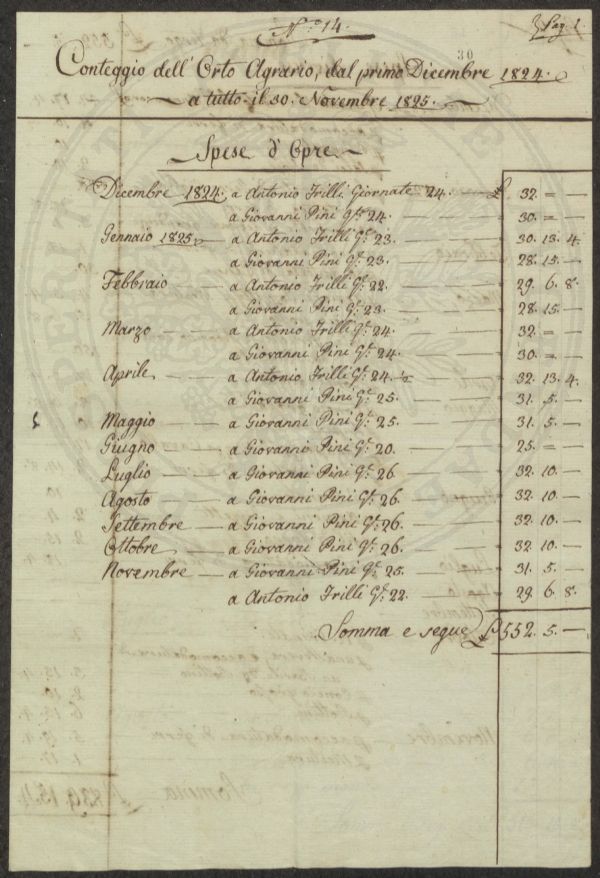 N.º 14.
Pag. 1.
30
Conteggio dell'Orto Agrario, dal primo Dicembre 1824.
a tutto il 30. Novembre 1825.
Spese d'Opre
Dicembre 1824. a Antonio Trilli Giornate 24. £ 32. = —
a Giovanni Pini G.te 24. 30. = —
Gennaio 1825 a Antonio Trilli G.te 23. 30. 13. 4.
a Giovanni Pini G.te 23. 28. 15. —
Febbraio a Antonio Trilli G.te 22. 29. 6. 8.
a Giovanni Pini G.te 23. 28. 15. —
Marzo a Antonio Trilli G.te 24. 32. = —
a Giovanni Pini G.te 24. 30. = —
Aprile a Antonio Trilli G.te 24. ½ 32. 13. 4.
a Giovanni Pini G.te 25. 31. 5. —
Maggio a Giovanni Pini G.te 25. 31. 5. —
Giugno a Giovanni Pini G.te 20. 25. = —
Luglio a Giovanni Pini G.te 26. 32. 10. —
Agosto a Giovanni Pini G.te 26. 32. 10. —
Settembre a Giovanni Pini G.te 26. 32. 10. —
Ottobre a Giovanni Pini G.te 26. 32. 10. —
Novembre a Giovanni Pini G.te 25. 31. 5. —
a Antonio Trilli G.te 22. 29. 6. 8.
Somma e segue £ 552. 5. —